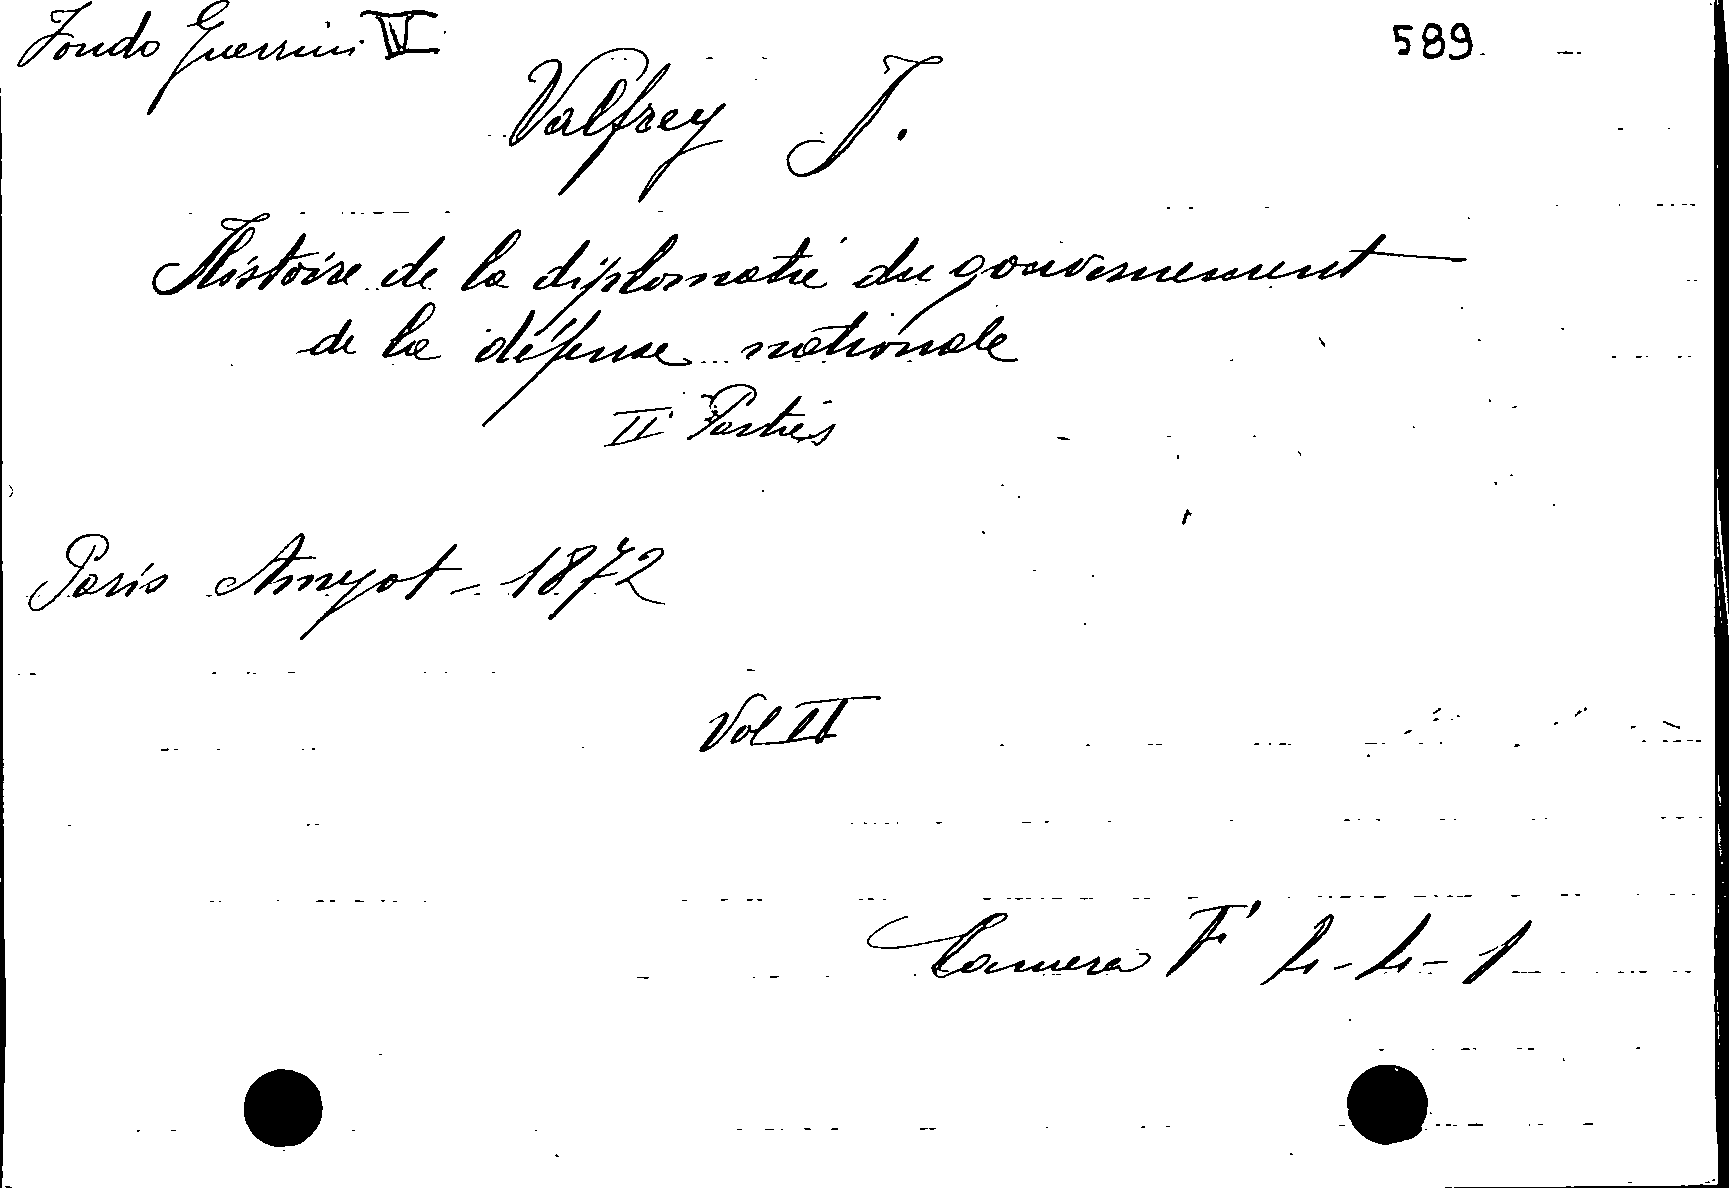 Fondo Guerrini VI 589
Valfrey J.
Histoire de la diplomatie du gouvernement
de la défense nationale
II Parties
Paris Amyot - 1872
Vol II
Camera F' 4-4-1